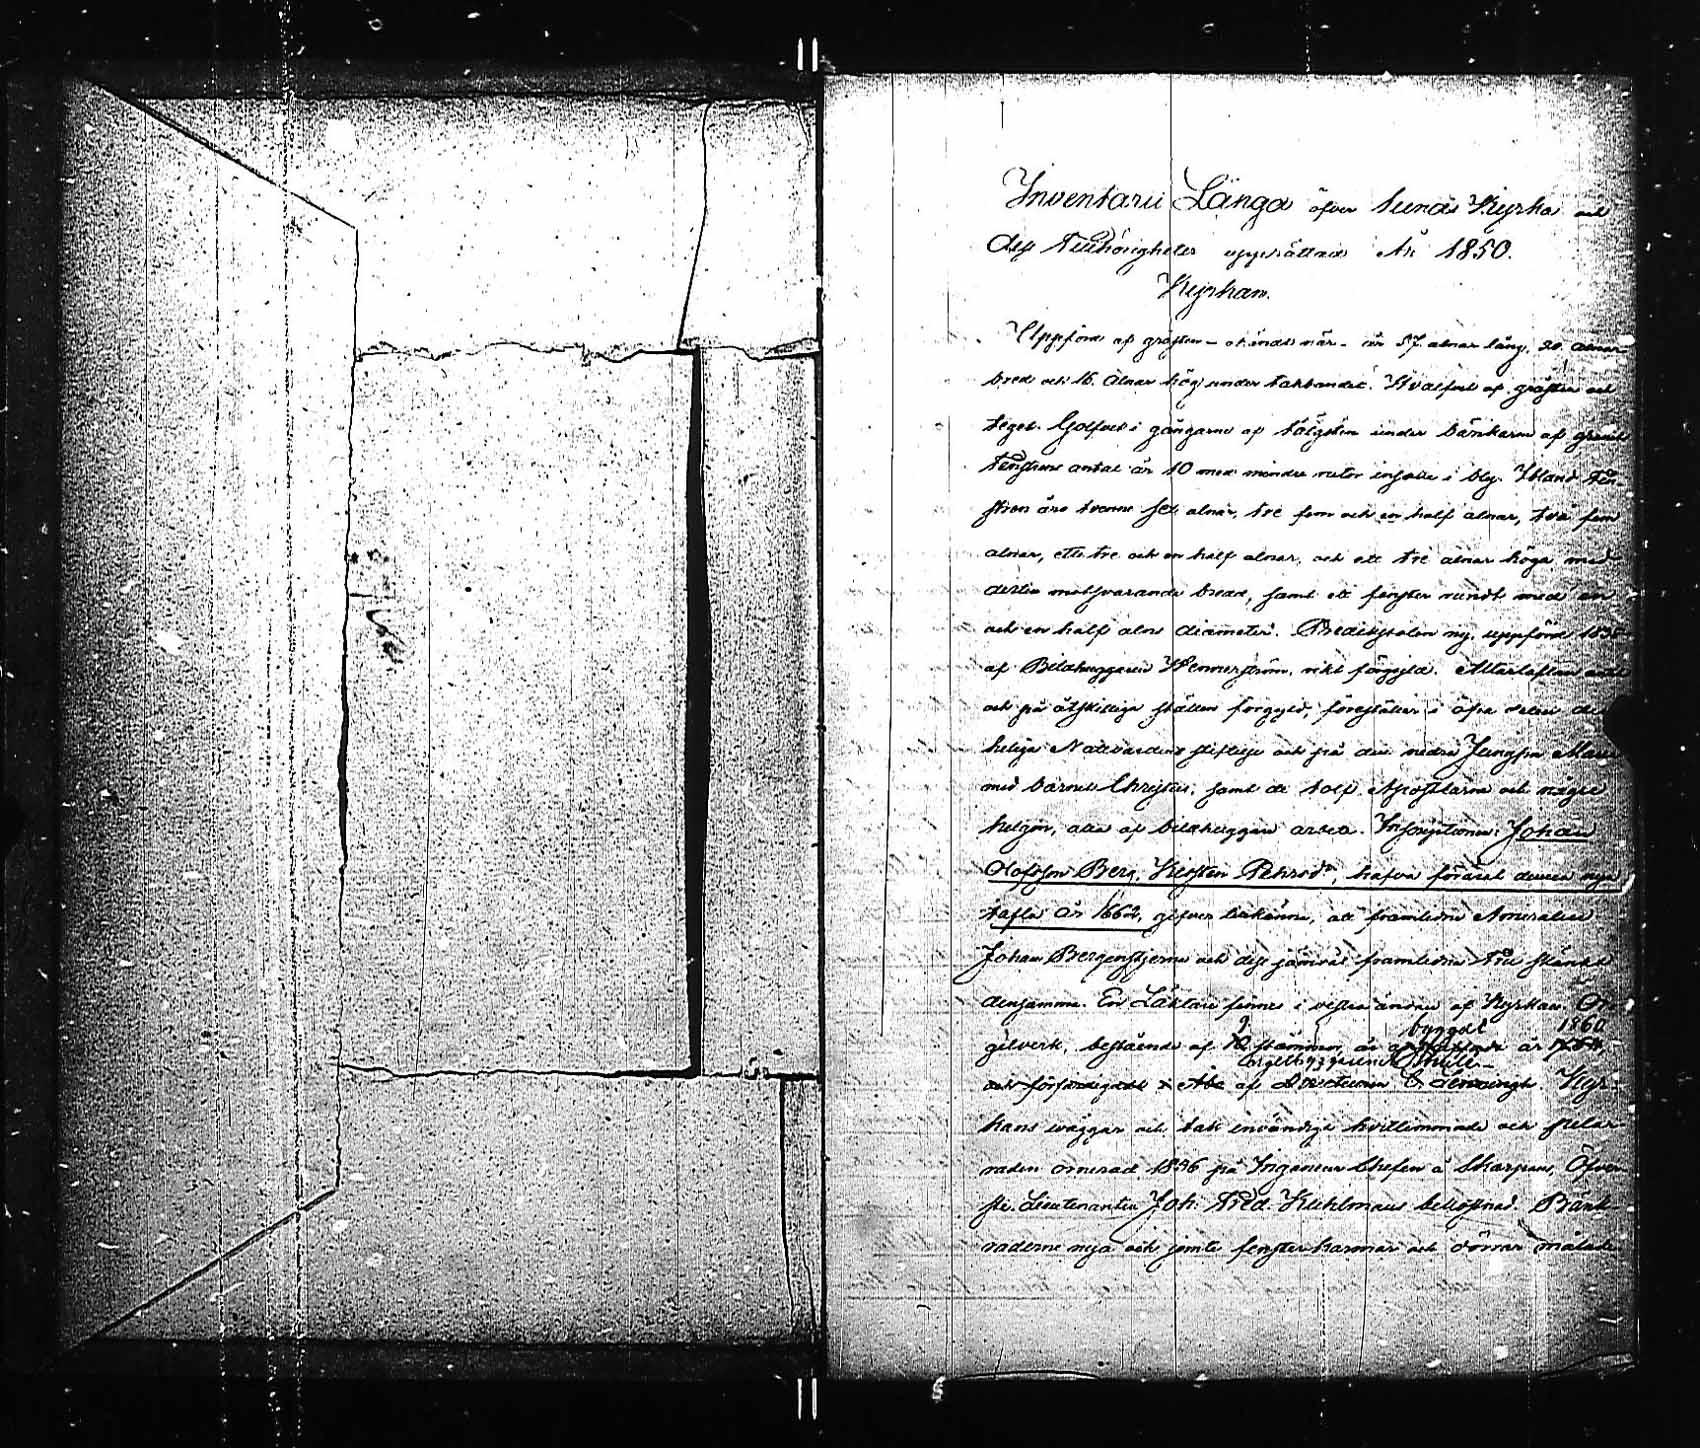 Inventarii Länga öfver Sunds Kyrka och
dess Tillhörigheter upprättad År 1850.
Kyrkan.
Uppförd af gråsten – okändt när – är 57 alnar lång, 20 alnar
bred och 16 alnar hög under takbandet. Hvalfvet af gråsten och
tegel. Golfvet i gångarne af täljsten under bänkarne af
Fenstrens antal är 10 med mindre rutor infattade i bly. Ibland Fen-
stren äro tvenne sex alnar, tre fem och en half alnar, två fem
alnar, ett tre och en half alnar, och ett tre alnar höga med
dertill motsvarande bredd, samt ett fenster rundt med en
och en half alns diameter. Predikstolen ny, uppförd
af Bildhuggaren Wennerström, rikt förgyld. Altartaflan
och på åtskilliga ställen förgyld, föreställer i öfra delen den
heliga Nattvardens stiftelse och på den nedra Jungfru Maria
med barnet Christus, samt de tolf Apostlarne och några
helgon, alla af bildhuggeri arbete. Inscriptionen: Johan
Olofsson Berg, Kirsten Pehrsdr, hafva förärat denna nya
tafla år 1662, gifver tillkänna, att framledne Amiralen
Johan Bergenstjerna och dess jämväl framledna Fru skänkt
densamma. En Läktare finnes i vestra ändan af Kyrkan. Or-
byggdt 1860
gelverk, bestående af stämmor, är år
orgelbyggaren Thulé
och förfärdigadt i Åbo af Directeuren Kyr-
kans väggar och tak invändigt hvitlimmade och pelar-
raden ornerad 1836 på Ingenieur Chefen å Skarpans, Öfver-
ste Lieutenanten Joh: Fred. Kuhlmans bekostnad. Bänk-
raderne nya och jemte fensterkarmar och dörrar målade